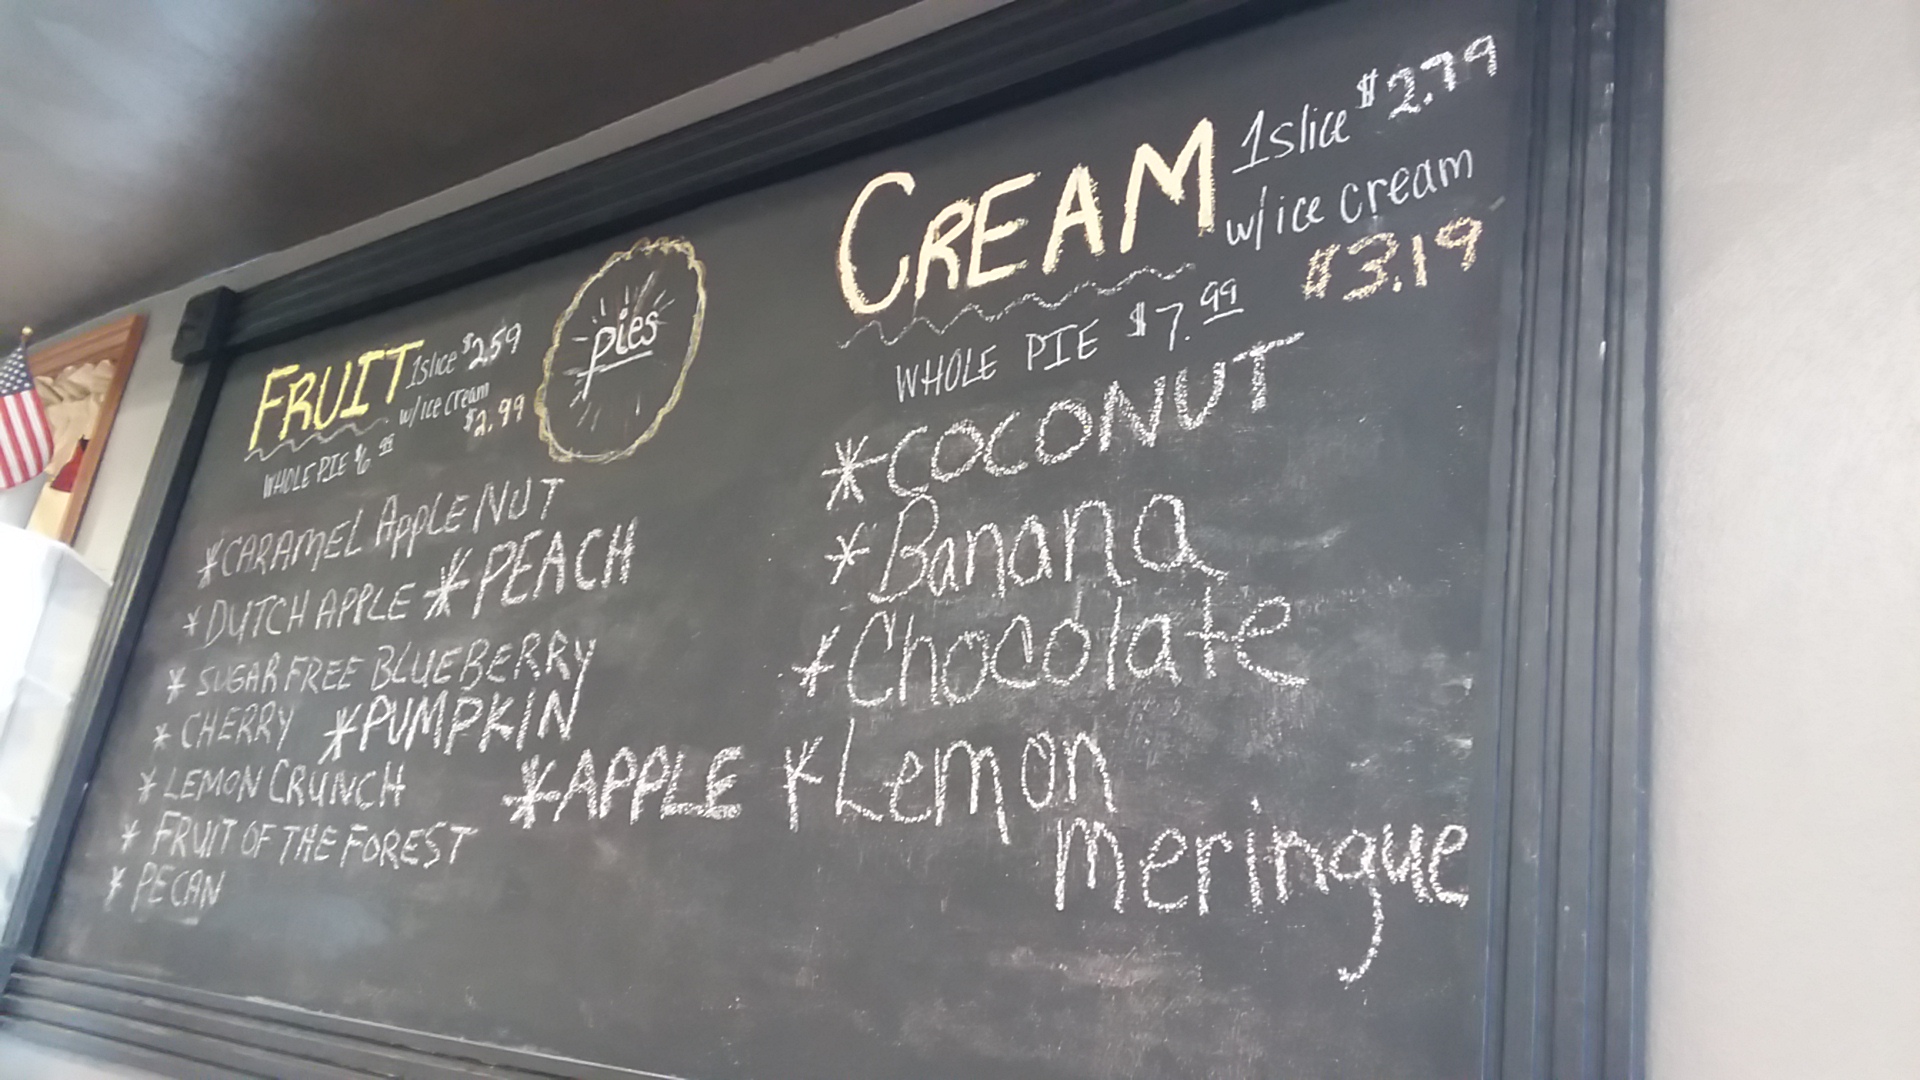 pies
FRUIT 1 slice $2.59
w/ice cream
$2.99
WHOLE PIE $6.99
*CARAMEL APPLE NUT
*DUTCH APPLE *PEACH
*SUGAR FREE BLUEBERRY
*CHERRY *PUMPKIN
*LEMON CRUNCH *APPLE
*FRUIT OF THE FOREST
*PECAN
CREAM 1 slice $2.79
w/ice cream
$3.19
WHOLE PIE $7.99
*COCONUT
*Banana
*Chocolate
*Lemon
meringue